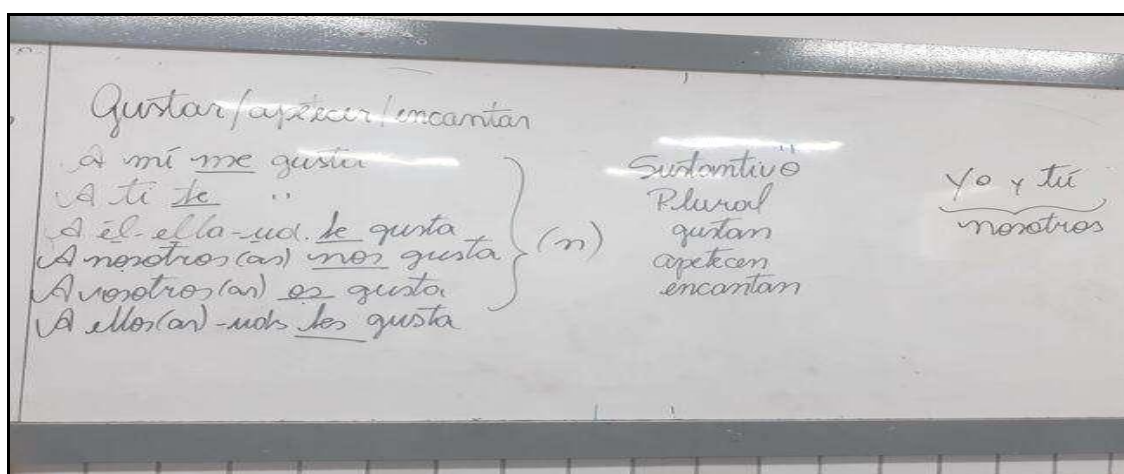 Gustar/apetecer/encantar
A mí me gusta
A ti te "
A él-ella-ud. le gusta
A nosotros(as) nos gusta
A vosotros(as) os gusta
A ellos(as)-uds les gusta
(n)
Sustantivo
Plural
gustan
apetecen
encantan
Yo y tú
nosotros